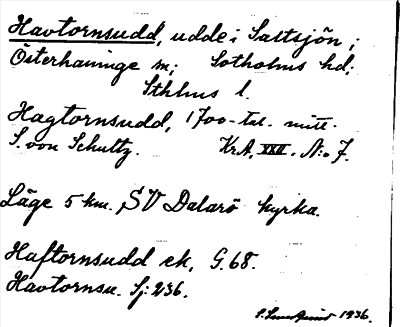 Havtornsudd, udde i Saltsjön,
Österhaninge sn; Sotholms hd;
Sthlms l.
Hagtornsudd, 1700-tal. mitt.
S. von Schultz. Kr.A. XXII. N:o 7.
Läge 5 km. SV Dalarö kyrka.
Haftornsudd ek, G. 68.
Havtornsu. Sj: 236.
1936.